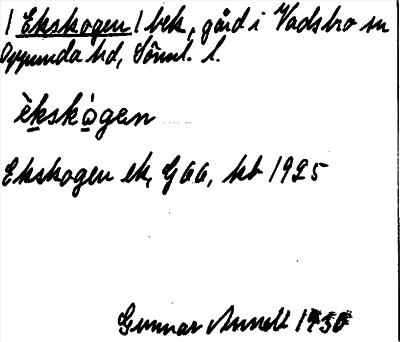 / Ekskogen / bek, gård i Vadsbro sn
Oppunda hd, Sörml. l.
èkskògen
Ekskogen ek, G66, kb 1925
Gunnar 1930